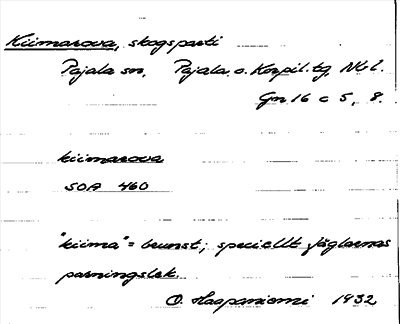 Kiimarova, skogsparti
Pajala sn, Pajala o. Korpil. tg, Nbl.
Gn 16 c 5, 8.
kiimarova
SOA 460
"kiima" = brunst; speciellt fåglarnas
parningslek.
O. Haapaniemi 1932